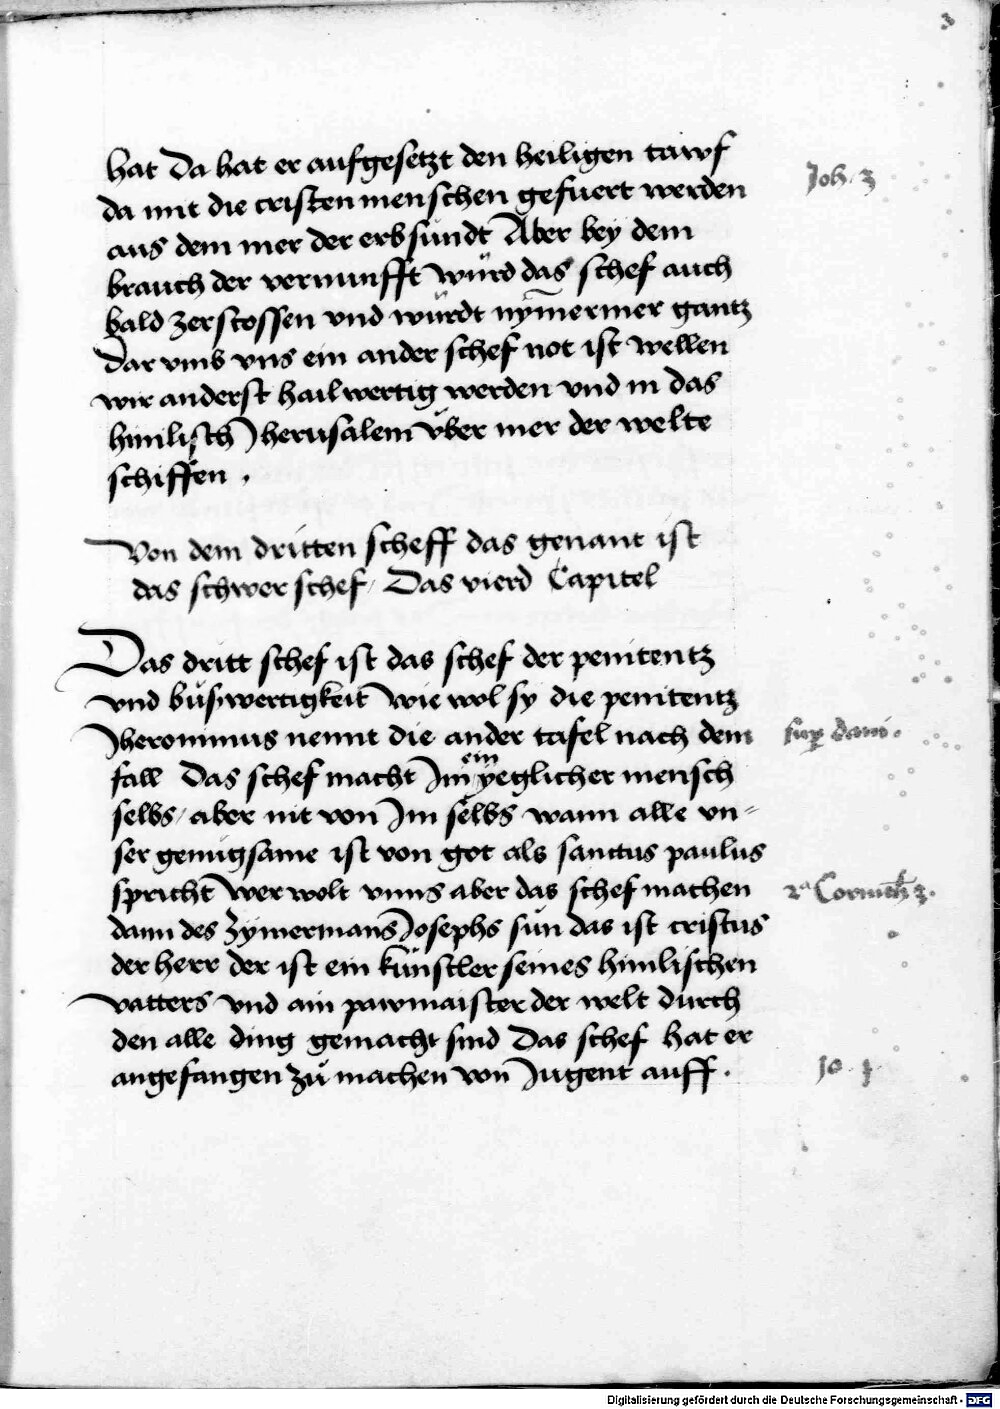 3
hat Da hat er aufgesetzt den heiligen tawf
Joh. 3
da mit die cristenmenschen gefuert werden
aus dem mer der erbsundt Aber bey dem
brauch der vernunfft würd das schef auch
bald zerstossen vnd würdt nymermer gantz
Dar vmb vns ein ander schef not ist wellen
wir anderst hailwertig werden vnd in das
himlisch Jherusalem vber mer der welte
schiffen .
Von dem dritten scheff das genant ist
das schwer schef / Das vierd Capitel
Das dritt schef ist das schef der penitentz
vnd bůswertigkeit Wie wol sy die penitentz
Jheronimus nennt die ander tafel nach dem
sup dani .
fall Das schef macht Im ein yeglicher mensch
selbs / aber nit von Im selbs wann alle vn=
ser genugsame ist von got als sanctus paulus
spricht Wer wolt vnns aber das schef machen
2ª Corinth 3 .
dann des Zymermans Josephs sun das ist cristus
der herr der ist ein künstler seines himlischen
vatters vnd ain pawmaister der welt durch
den alle ding gemacht sind Das schef hat er
angefangen zů machen von Jugent auff .
Jo . 1
Digitalisierung gefördert durch die Deutsche Forschungsgemeinschaft - DFG